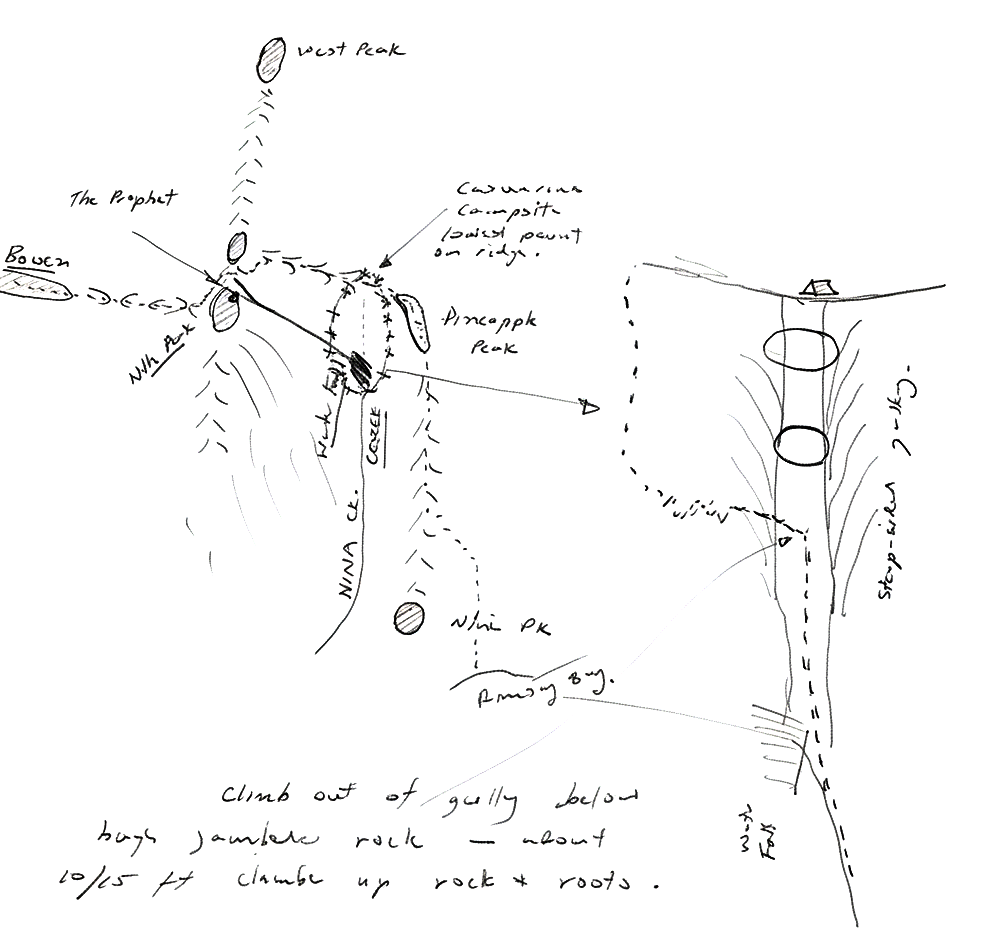 West Peak
The Prophet
Casuarina
Campsite
lowest point
on ridge.
Bowen
Nth Peak
Pineapple
Peak
Water Fall
CREEK
NINA CK.
Nina PK
Ramsay Bay.
Steep-sided gulley.
Water
Fall
Climb out of gully below
hugh jambed rock — about
10/15 ft climbe up rock + roots.